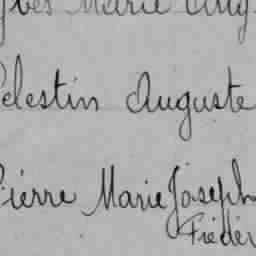 Yves Marie Aug
Celestin Auguste
Pierre Marie Joseph
Fréder